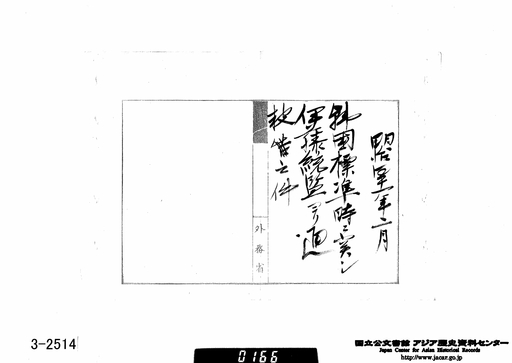 明治四十一年二月
韓国標準時ニ関シ
伊藤統監ヨリ通
牒ノ件
外務省
3-2514
0166
国立公文書館 アジア歴史資料センター
Japan Center for Asian Historical Records
http://www.jacar.go.jp